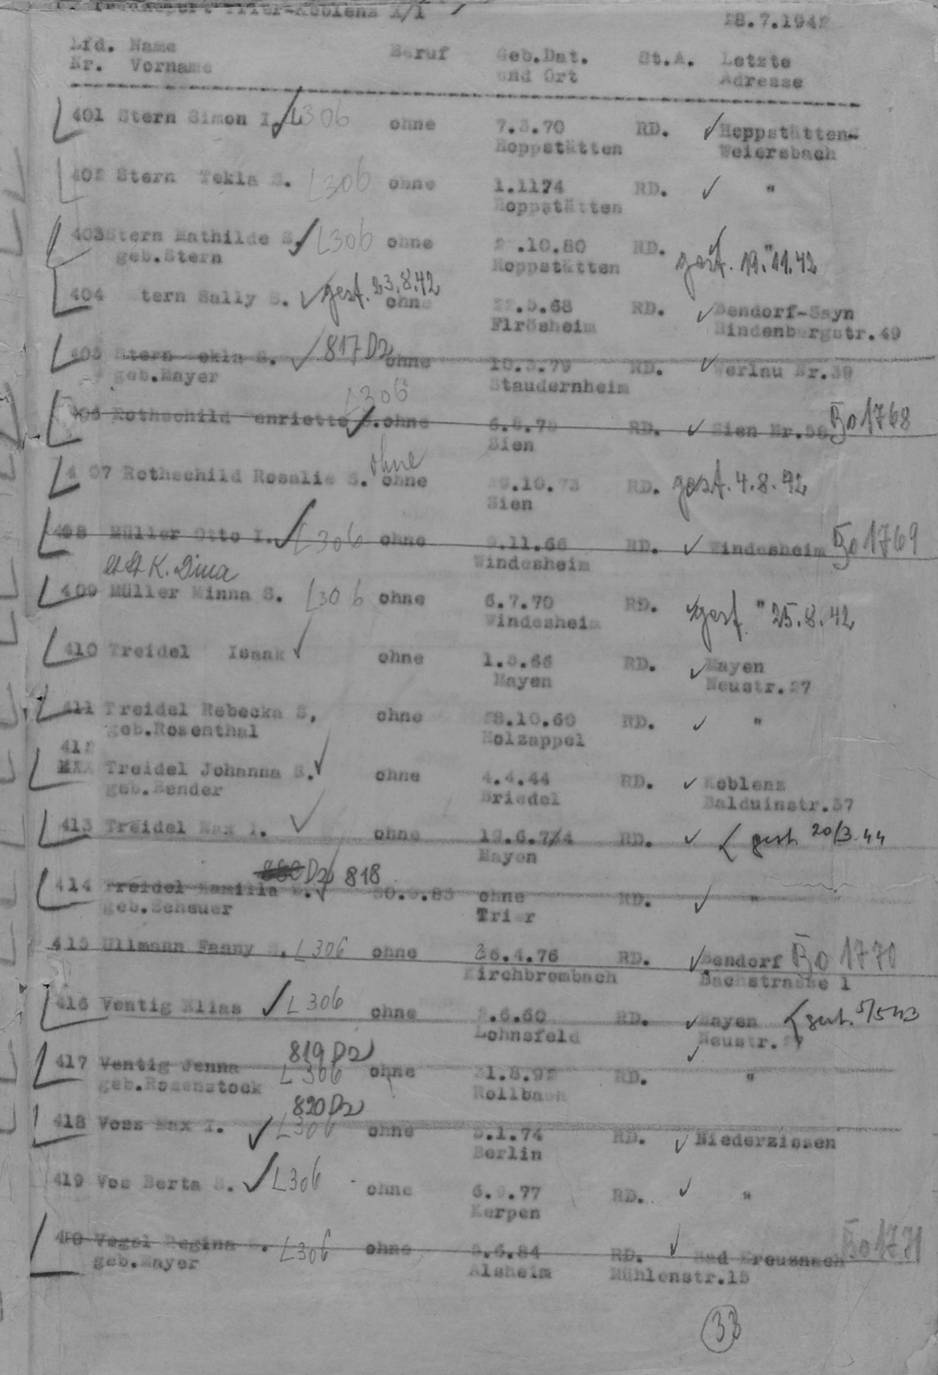 Transport Trier-Koblenz X/1 28.7.1942
Lfd. Name Beruf Geb.Dat. St.A. Letzte
Nr. Vorname und Ort Adresse
401 Stern Simon I. L306 ohne 7.3.70 RD. Hoppstätten-
Hoppstätten Weiersbach
402 Stern Tekla S. L306 ohne 1.1174 RD. "
Hoppstätten
403 Stern Mathilde S. L306 ohne .10.80 RD. "
geb.Stern Hoppstätten gest. 19.11.42
404 tern Sally S. gest. 23.8.42 ohne .5.68 RD. Bendorf-Sayn
Flrösheim Hindenburgstr.49
405 Stern Tekla S. 817 Dz ohne 10.3.79 RD. Werlau Nr.39
geb.Mayer Staudernheim
L306
406 Rothschild Henriette S. ohne RD. Sien Nr.58 Bo 1768
Sien
ohne
407 Rothschild Rosalie S. ohne .10.73 RD. gest. 4.8.42
Sien
408 Müller Otto I. L306 ohne .11.66 RD. Windesheim Bo 1769
Windesheim
K. Dina
409 Müller Minna S. L306 ohne 6.7.70 RD. " gest. 25.8.42
Windesheim
410 Treidel Isaak ohne 1.8.66 RD. Mayen
Mayen Neustr.27
411 Treidel Rebecka S. ohne 28.10.60 RD. "
geb.Rosenthal Holzappel
412
MXX Treidel Johanna S. ohne 4.4.44 RD. Koblenz
geb.Bender Briedel Balduinstr.37
413 Treidel Max I. ohne 19.6.7/4 RD. gest. 20/3.44
Mayen
Dz 818
414 Treidel Kamilla S. ohne RD. "
geb.Scheuer Trier
415 Ullmann Fanny S. L306 ohne 26.4.76 RD. Bendorf Bo 1770
Kirchbrombach Bachstrasse 1
416 Ventig Elias L306 ohne .6.60 RD. Mayen gest. 5/5 43
Lohnsfeld Neustr.27
819 Dz
417 Ventig Jenna L306 ohne 31.8.92 RD. "
geb.Rosenstock Rollbach
820 Dz
418 Voss Max I. L306 ohne .1.74 RD. Niederzissen
Berlin
419 Vos Berta S. L306 ohne 6. .77 RD. "
Kerpen
420 Vogel Regina S. L306 ohne .6.84 RD. Bad Kreuznach Bo 1771
geb.Mayer Alsheim Mühlenstr.15
33